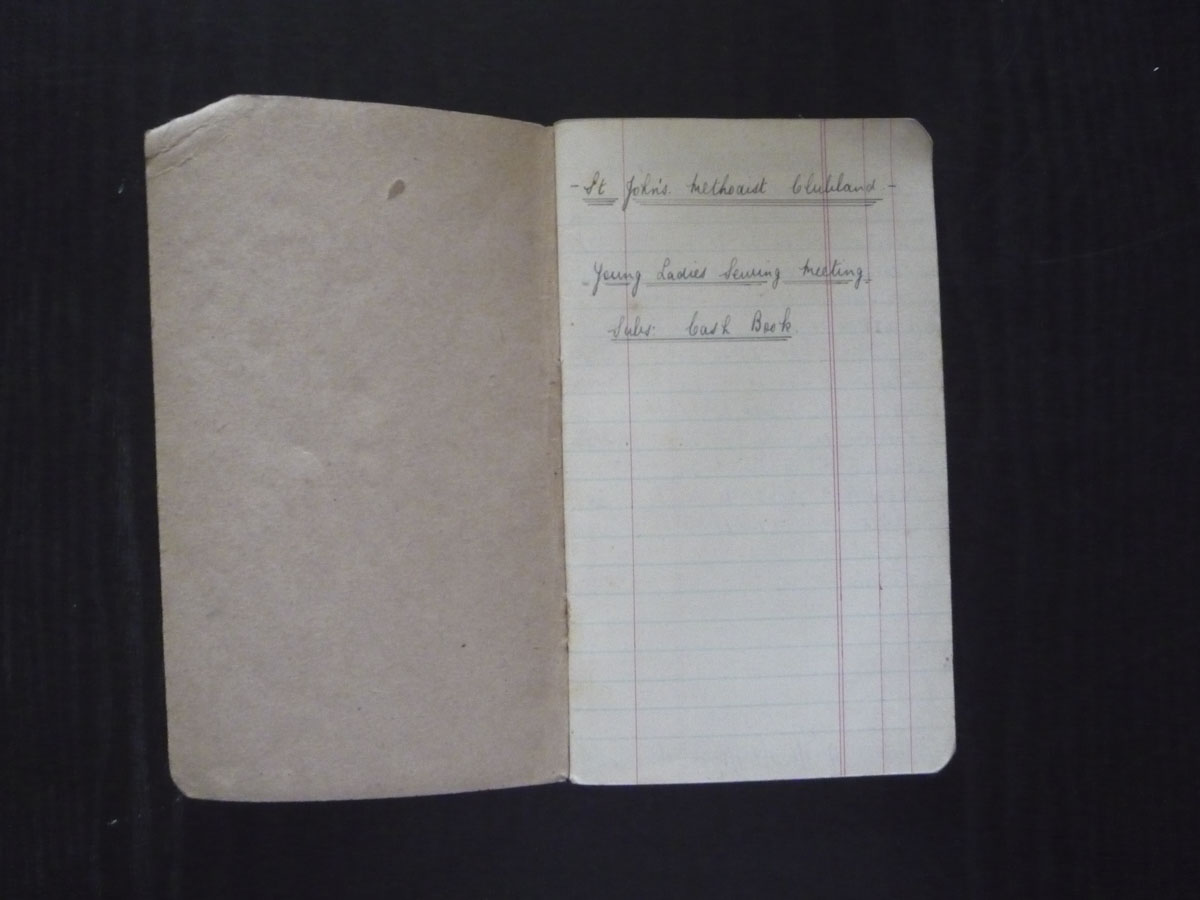 - St John's Methodist Clubland -
- Young Ladies Sewing Meeting -
Subs: Cash Book